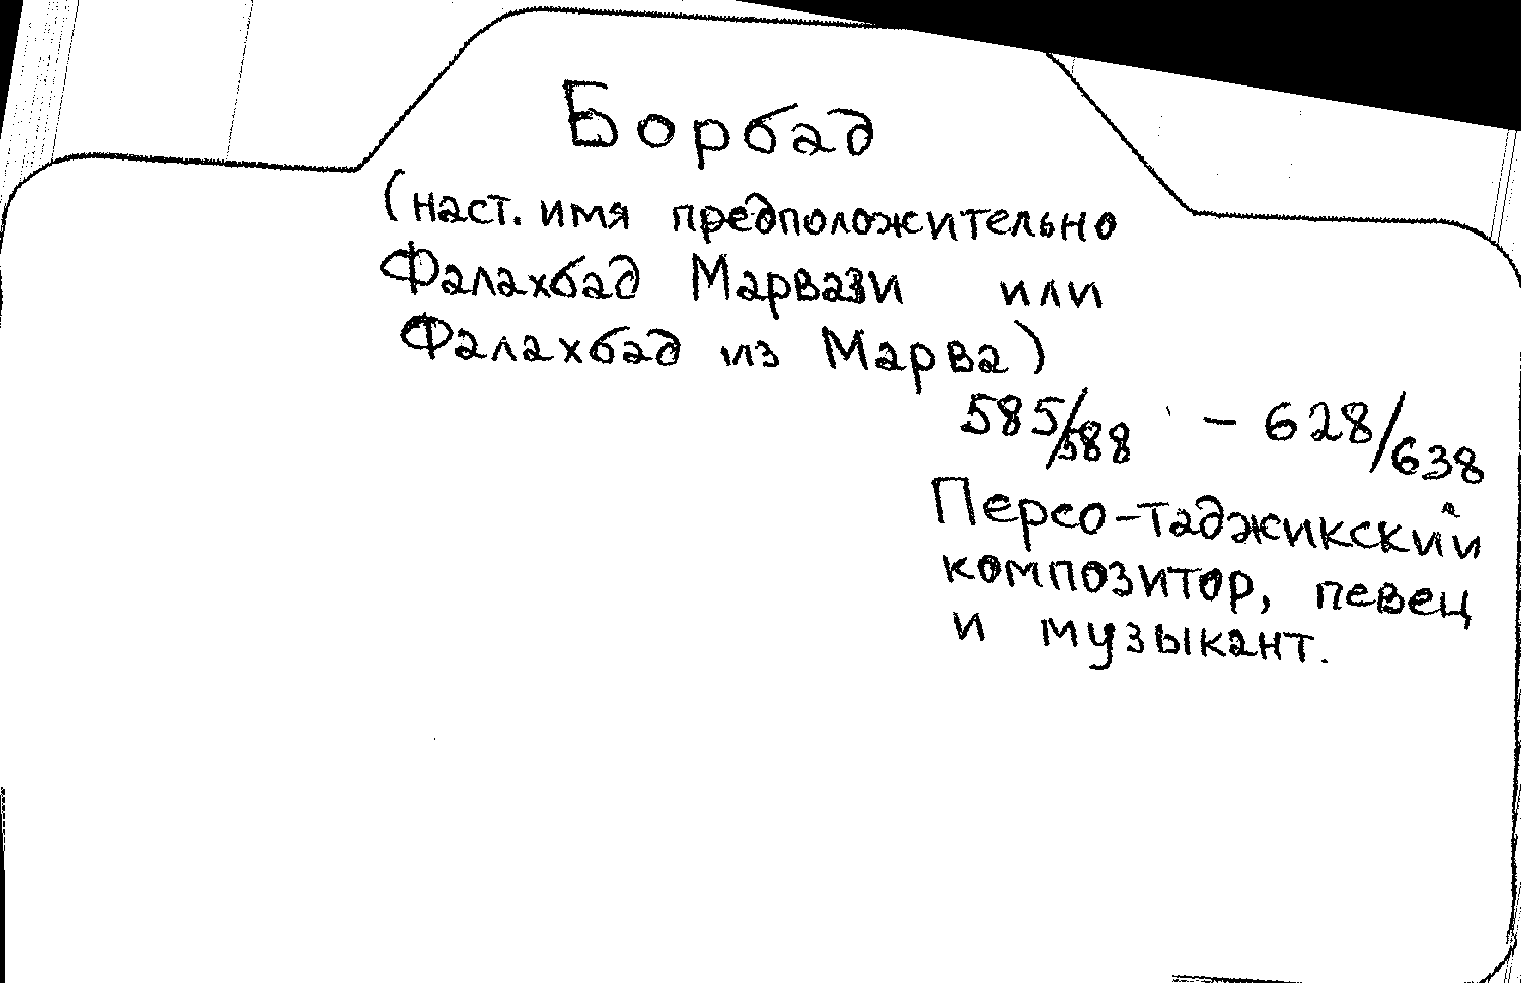 Борбад
(наст. имя предположительно
Фалахбад Марвази или
Фалахбад из Марва)
585/588 – 628/638
Персо-таджикский
композитор, певец
и музыкант.